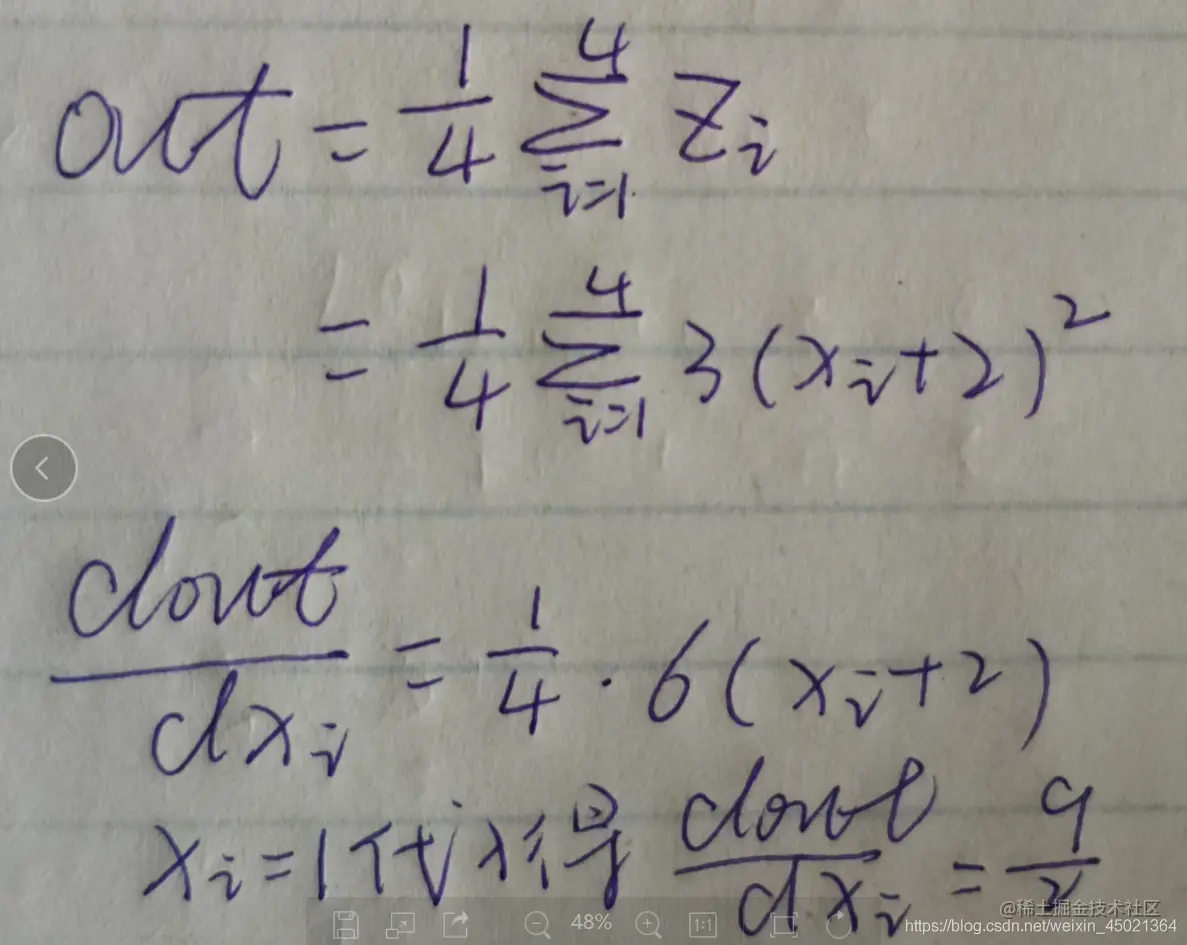 out = \frac{1}{4} \sum_{i=1}^{4} z_i
= \frac{1}{4} \sum_{i=1}^{4} 3(x_i+2)^2
\frac{dout}{dx_i} = \frac{1}{4} \cdot 6(x_i+2)
x_i=1代入得 \frac{dout}{dx_i} = \frac{9}{2}
48%
1:1
@稀土掘金技术社区
https://blog.csdn.net/weixin_45021364